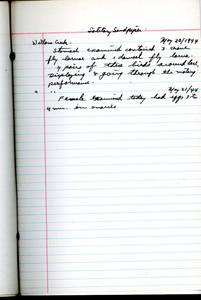 Solitary Sandpiper
Willow Creek. May 20/1944
Stomach examined contained 3 crane
fly larvae and 1 damsel fly larva.
4 pairs of these birds around here,
displaying & going through the mating
performance.
" " May 21/44
Female examined today had eggs 3 to
4 mm. in ovaries